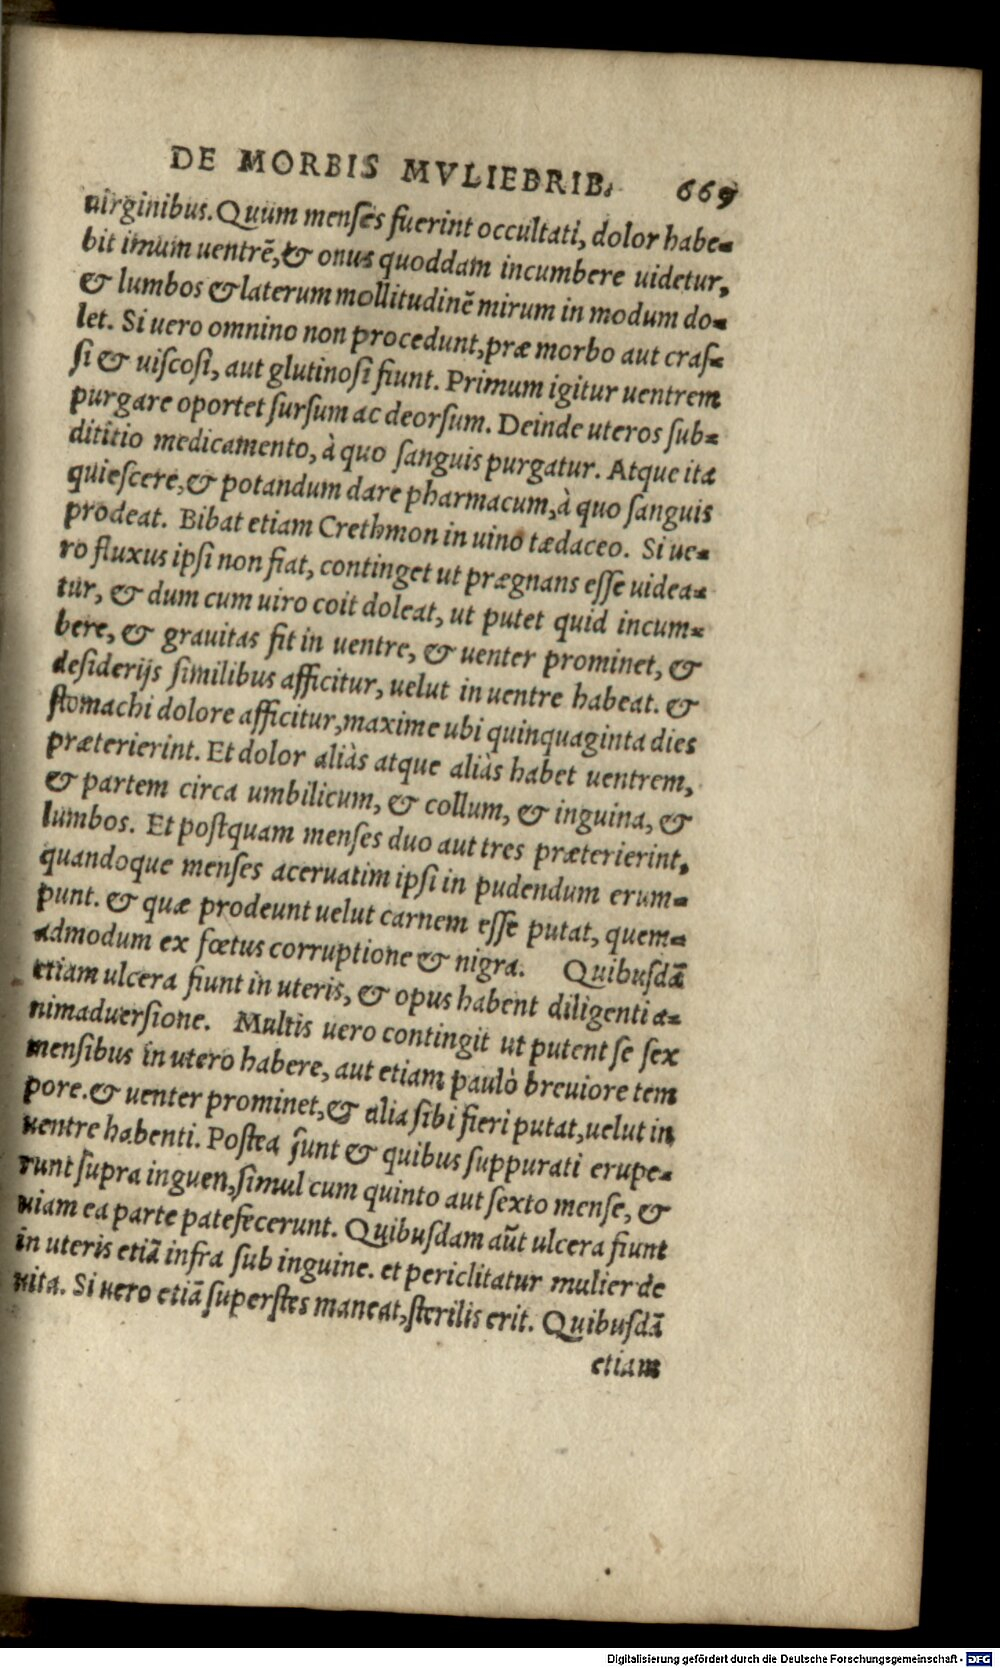 DE MORBIS MVLIEBRIB. 669
uirginibus. Quum menses fuerint occultati, dolor habe-
bit imum uentrē, & onus quoddam incumbere uidetur,
& lumbos & laterum mollitudinē mirum in modum do-
let. Si uero omnino non procedunt, præ morbo aut cras-
si & uiscosi, aut glutinosi fiunt. Primum igitur uentrem
purgare oportet sursum ac deorsum. Deinde uteros sub-
dititio medicamento, à quo sanguis purgatur. Atque ita
quiescere, & potandum dare pharmacum, à quo sanguis
prodeat. Bibat etiam Crethmon in uino tædaceo. Si ue-
ro fluxus ipsi non fiat, continget ut prægnans esse uidea-
tur, & dum cum uiro coit doleat, ut putet quid incum-
bere, & grauitas fit in uentre, & uenter prominet, &
desiderijs similibus afficitur, uelut in uentre habeat. &
stomachi dolore afficitur, maxime ubi quinquaginta dies
præterierint. Et dolor aliàs atque aliàs habet uentrem,
& partem circa umbilicum, & collum, & inguina, &
lumbos. Et postquam menses duo aut tres præterierint,
quandoque menses aceruatim ipsi in pudendum erum-
punt. & quæ prodeunt uelut carnem esse putat, quem-
admodum ex fœtus corruptione & nigra. Quibusdā
etiam ulcera fiunt in uteris, & opus habent diligenti a-
nimaduersione. Multis uero contingit ut putent se sex
mensibus in utero habere, aut etiam paulò breuiore tem
pore. & uenter prominet, & alia sibi fieri putat, uelut in
uentre habenti. Postea sunt & quibus suppurati erupe-
runt supra inguen, simul cum quinto aut sexto mense, &
uiam ea parte patefecerunt. Quibusdam aūt ulcera fiunt
in uteris etiā infra sub inguine. et periclitatur mulier de
uita. Si uero etiā superstes maneat, sterilis erit. Quibusdā
etiam
Digitalisierung gefördert durch die Deutsche Forschungsgemeinschaft - DFG